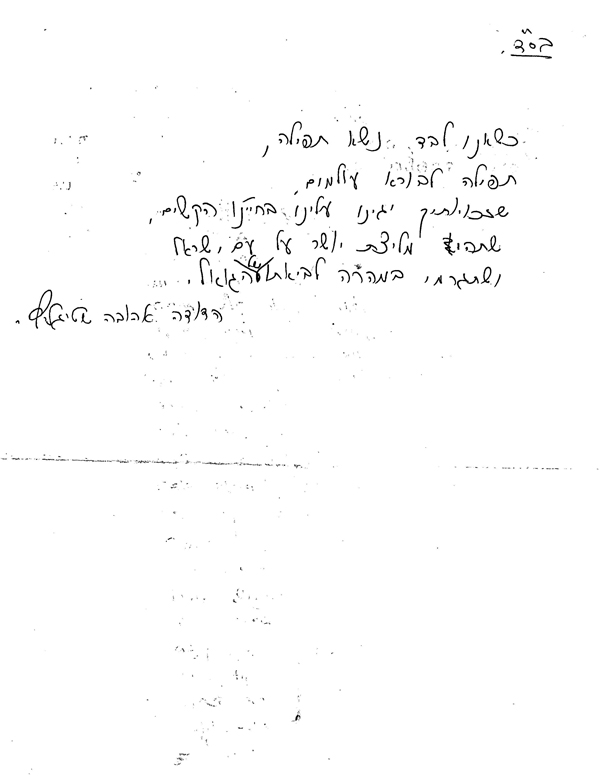 בס"ד.
כשאנו לבד נשא תפילה,
תפילה לבורא עולמים,
שזכויותיך יגינו עלינו בחיינו הקשים,
שתהיי מליצת יושר על עם ישראל
ושתגרמי במהרה לביאת של הגואל.
הדודה אהובה